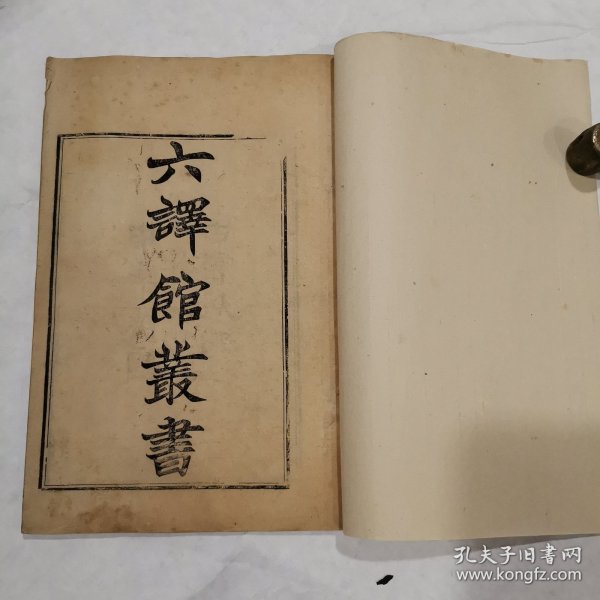 六譯館叢書
孔夫子旧書网
www.kongfz.com